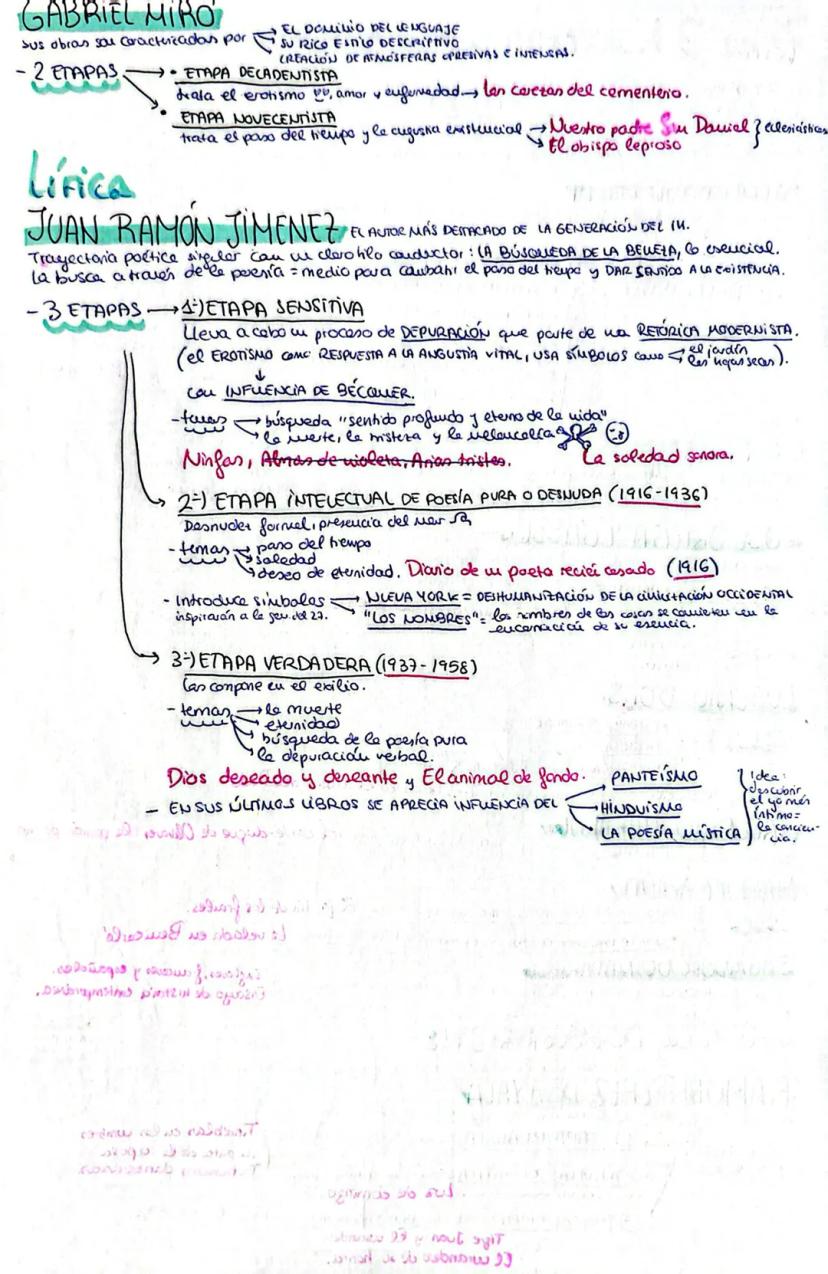 GABRIEL MIRÓ
sus obras son caracterizadas por
EL DOMINIO DEL LENGUAJE
SU RICO ESTILO DESCRIPTIVO
CREACIÓN DE ATMÓSFERAS OPRESIVAS E INTENSAS.
- 2 ETAPAS
• ETAPA DECADENTISTA
trata el erotismo, amor y enfermedad → las cerezas del cementerio.
• ETAPA NOVECENTISTA
trata el paso del tiempo y la angustia existencial → Nuestro padre San Daniel } eclesiásticas
El obispo leproso
Lírica
JUAN RAMÓN JIMENEZ EL AUTOR MÁS DESTACADO DE LA GENERACIÓN DEL 14.
Trayectoria poética singular con un claro hilo conductor: LA BÚSQUEDA DE LA BELLEZA, lo esencial.
La busca a través de la poesía = medio para combatir el paso del tiempo y DAR SENTIDO A LA EXISTENCIA.
- 3 ETAPAS → 1ª) ETAPA SENSITIVA
Lleva a cabo un proceso de DEPURACIÓN que parte de una RETÓRICA MODERNISTA.
(el EROTISMO COMO RESPUESTA A LA ANGUSTIA VITAL, USA SÍMBOLOS como el jardín
las hojas secas).
con INFLUENCIA DE BÉCQUER.
- temas → búsqueda "sentido profundo y eterno de la vida"
la muerte, la tristeza y la melancolía
Ninfas, Almas de violeta, Arias tristes. La soledad sonora.
2ª) ETAPA INTELECTUAL DE POESÍA PURA O DESNUDA (1916-1936)
Desnudez formal, presencia del mar
- temas → paso del tiempo
soledad
deseo de eternidad. Diario de un poeta recién casado (1916)
- Introduce símbolos → NUEVA YORK = DESHUMANIZACIÓN DE LA CIVILIZACIÓN OCCIDENTAL
inspirarán a la gen. del 27. "LOS NOMBRES" = los nombres de las cosas se convierten en la
encarnación de su esencia.
3ª) ETAPA VERDADERA (1937-1958)
las compone en el exilio.
- temas → la muerte
eternidad
búsqueda de la poesía pura
la depuración verbal.
Dios deseado y deseante y El animal de fondo.
= EN SUS ÚLTIMOS LIBROS SE APRECIA INFLUENCIA DEL
PANTEÍSMO
HINDUÍSMO
LA POESÍA MÍSTICA
Idea:
descubrir
el yo más
íntimo =
la concien-
cia.